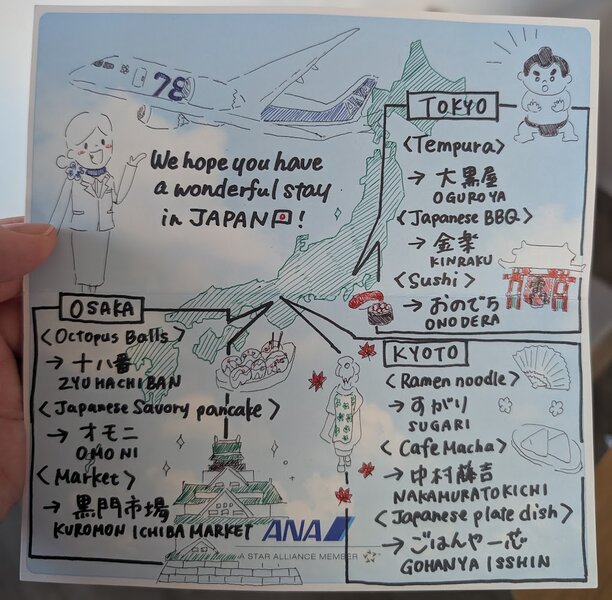 78
We hope you have
a wonderful stay
in JAPAN!
TOKYO
<Tempura>
→ 大黒屋
OGUROYA
<Japanese BBQ>
→ 金楽
KINRAKU
<Sushi>
→ おのでら
ONODERA
OSAKA
<Octopus Balls>
→ 十八番
ZYUHACHIBAN
<Japanese Savory pancake>
→ オモニ
OMONI
<Market>
→ 黒門市場
KUROMON ICHIBA MARKET
KYOTO
<Ramen noodle>
→ すがり
SUGARI
<Cafe Macha>
→ 中村藤吉
NAKAMURATOKICHI
<Japanese plate dish>
→ ごはんや一芯
GOHANYA ISSHIN
ANA
A STAR ALLIANCE MEMBER